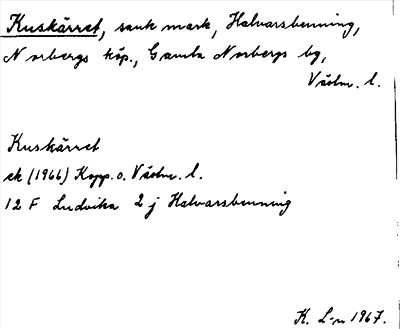 Kuskärret, sank mark, Halvarsbenning,
Norbergs köp., Gamla Norbergs bg,
Västm. l.
Kuskärret
ek (1966) Kopp. o. Västm. l.
12 F Ludvika 2 j Halvarsbenning
K. L-n 1967.